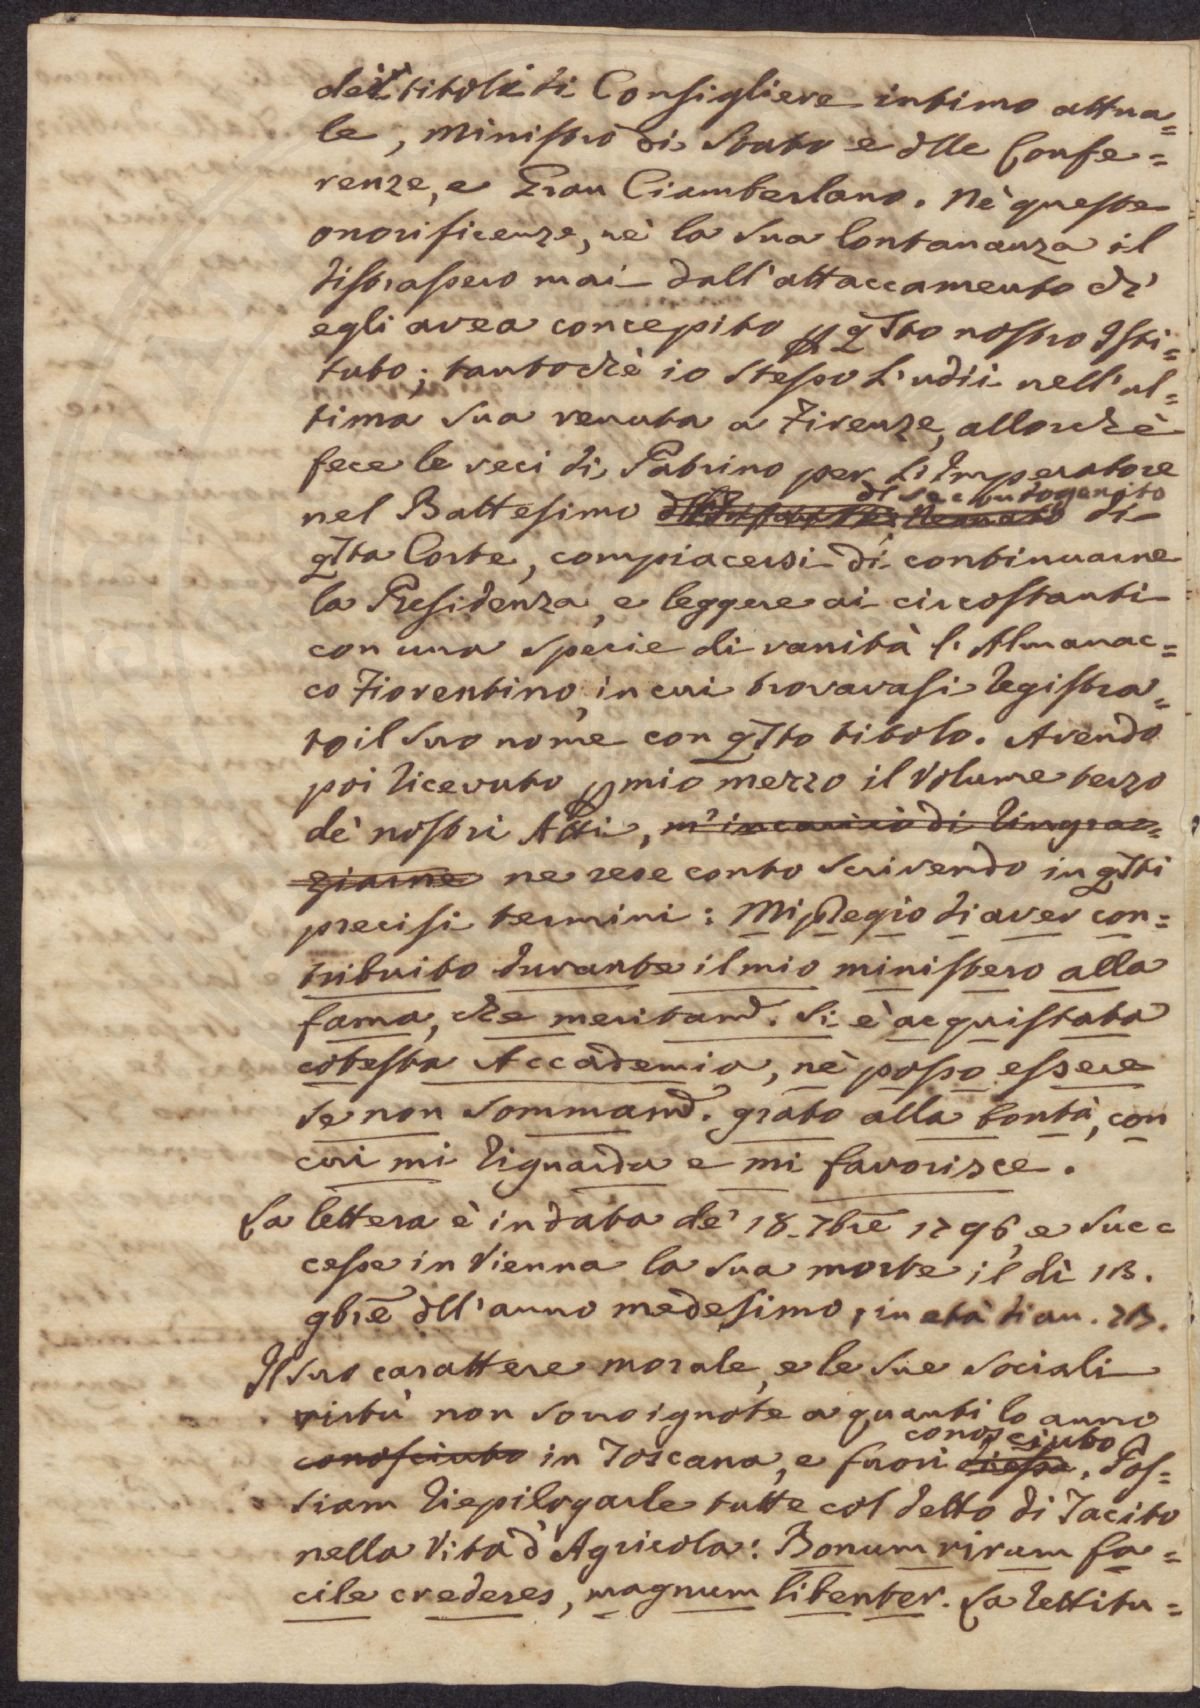 dei titoli di Consigliere intimo attua=
le, Ministro di Stato e dlle Confe=
renze, e Gran Ciamberlano. Nè queste
onorificenze, nè la sua lontananza il
distrassero mai dall'attaccamento ch'
egli avea concepito p qsto nostro Isti=
tuto; tantochè io stesso l'udii nell'ul=
tima sua venuta a Firenze, allorchè
fece le veci di Patrino per l'Imperatore
dl secondogenito
nel Battesimo di
qsta Corte, compiacersi di continuarne
la Presidenza, e leggere ai circostanti
con una specie di vanità l'Almanac=
co Fiorentino, in cui trovavasi registra=
to il suo nome con qsto titolo. Avendo
poi ricevuto p mio mezzo il Volume terzo
de' nostri Atti, m'incaricò di ringra=
ziarne ne rese conto scrivendo in qsti
precisi termini: Mi pregio di aver con=
tribuito durante il mio ministero alla
fama, che meritamd. si è acquistata
cotesta Accademia, nè posso essere
se non sommamd. grato alla bontà, con
cui mi riguarda e mi favorisce.
La lettera è in data de' 18. 7bre 1796, e suc
cesse in Vienna la sua morte il dì 13.
9bre dll'anno medesimo, in età di an. 73.
Il suo carattere morale, e le sue sociali
virtù non sono ignote a quanti lo anno
conosciuto
conosciuto in Toscana, e fuori d'essa. Pos=
siam riepilogarle tutte col detto di Tacito
nella Vita d'Agricola: Bonum virum fa=
cile crederes, magnum libenter. La rettitu=